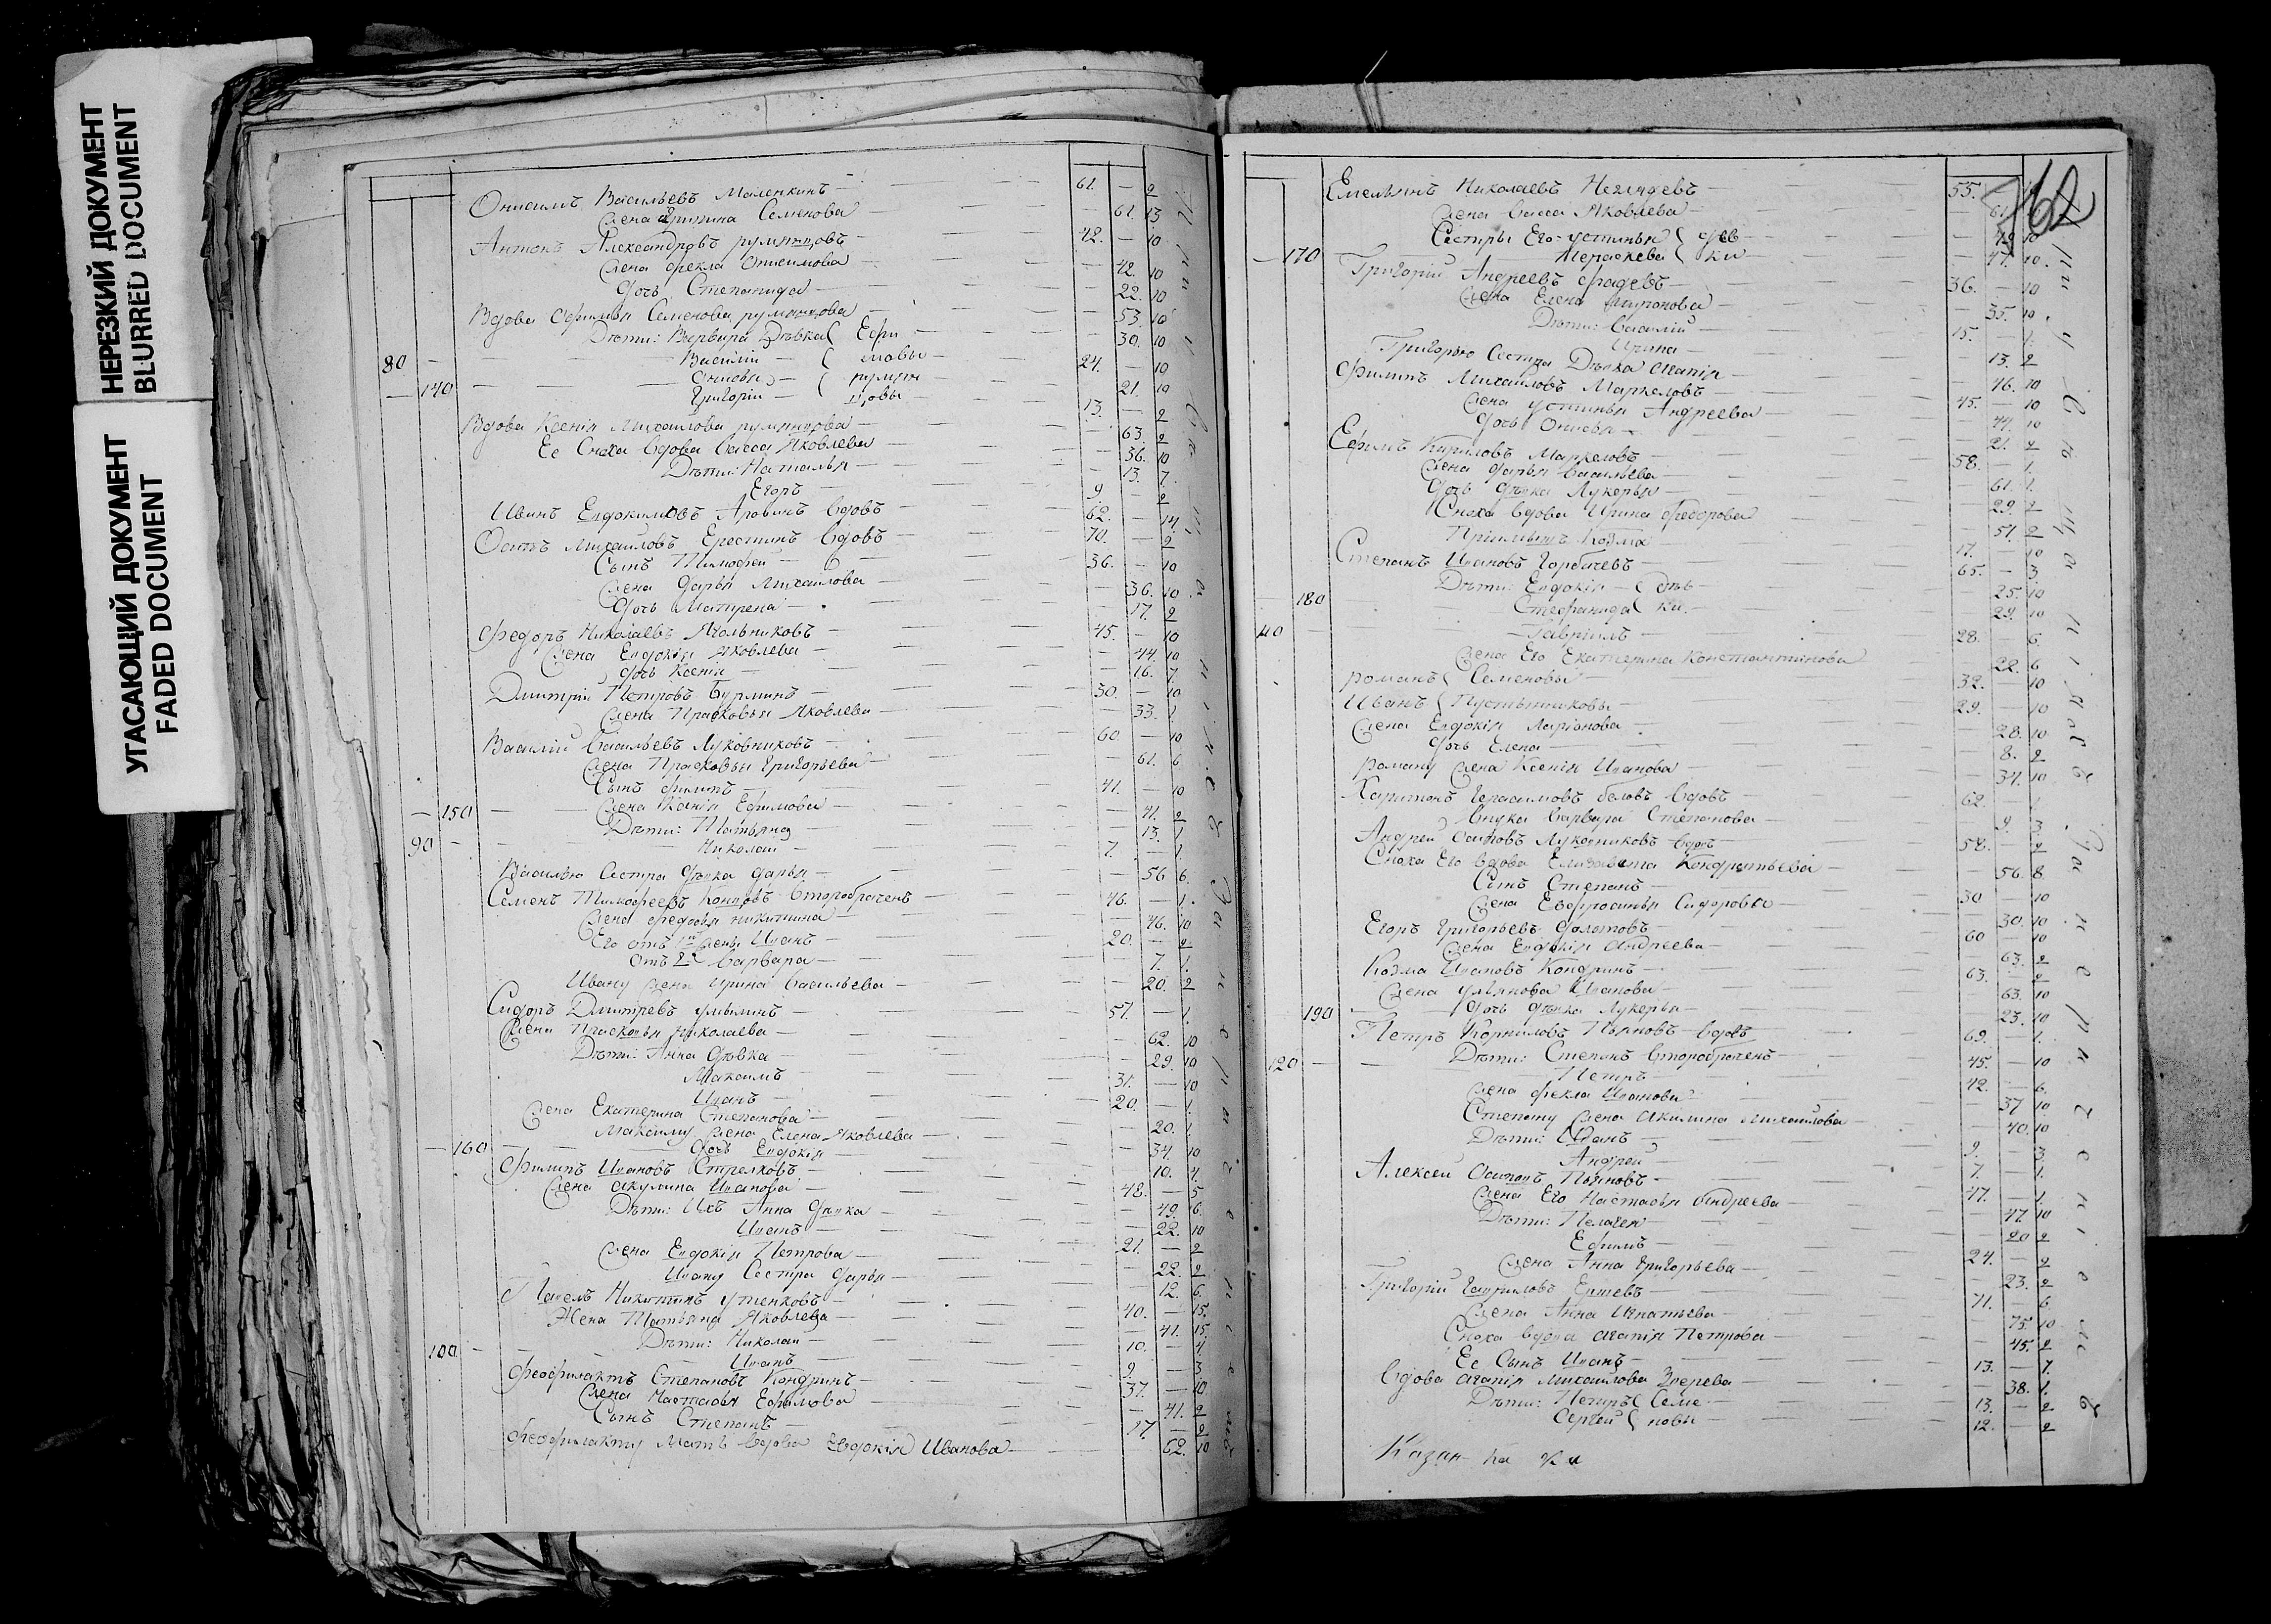 НЕРЕЗКИЙ ДОКУМЕНТ
BLURRED DOCUMENT
УГАСАЮЩИЙ ДОКУМЕНТ
FADED DOCUMENT
Онисимъ Васильевъ Маленкинъ 61. — 2
Жена Ирина Семенова — 61. 13
Антонъ Александровъ румянцовъ 42. — 10
Жена Фекла Онисимова — 42. 10
Дочь Степанида — 22. 10
Вдова Офимья Семенова румянцова — 53. 10
Дѣти: Варвара Дѣвка Ефи — 30. 10
80 Василій мовы 24. — 10
140 Онисья румян 21. 10
Григорій цовы 13. — 2
Вдова Ксенія Михаилова румянцова — 63. 2
Ее Сноха вдова Васса Яковлева — 36. 10
Дѣти: Наталья — 13. 7.
Егоръ 9 — 2
Иванъ Евдокимовъ вдовъ 62. — 14.
Осипъ Михаиловъ вдовъ 70. — 2
Сынъ Тимофей 36. — 10
Жена Дарья Михаилова — 36. 10
Дочь Матрена — 17. 2
Федоръ Николаевъ Ягольниковъ 45. — 10
Жена Евдокія Яковлева — 44. 10
Дочь Ксенія — 16. 7.
Дмитрій Петровъ Бурминъ 30. — 10
Жена Прасковья Яковлева — 33. 1.
Василій Васильевъ Луковниковъ 60. — 10
Жена Прасковья Григорьева — 61. 6
Сынъ Филипъ 41. — 10
150 Жена Ксенія Ефимова — 41. 2
Дѣти: Татьяна — 13. 1
90 Николай 7. — 1.
Василью Сестра Дѣвка Дарья — 56 6.
Семенъ Тимофеевъ второбраченъ 46. — 1.
Жена Федосья никитина — 46. 10
Его отъ 1й жены Иванъ 20. — 2
Отъ 2й Варвара — 7. 1.
Ивану Жена Ирина Васильева — 20. 2
Сидоръ Дмитревъ 57. — 1.
Жена Прасковья Николаева — 62. 10
Дѣти: Анна Дѣвка — 29. 10
Максимъ 31. — 10
Иванъ 20. — 1.
Жена Екатерина Степанова — 20. 1.
Максиму Жена Елена Яковлева — 34. 10
160 Дочь Евдокія — 10. 4.
Филипъ Ивановъ Стрелковъ 48. — 5
Жена Акулина Иванова — 49. 6.
Дѣти: Ихъ Анна Дѣвка — 22. 10
Иванъ 21. — 2
Жена Евдокія Петрова — 22. 2
Ивану Сестра Дарья — 12. 6.
Павелъ Никитинъ утенковъ 40. — 15.
Жена Татьяна Яковлева — 41. 15.
Дѣти: Николай 10. — 4.
100 Иванъ 9. — 3.
Феофилактъ Степановъ Кондринъ 37. — 10
Жена Настасья Ефимова — 41. 2
Сынъ Степанъ 17. — 2
Феофилакту Мать вдова Евдокія Иванова — 62. 10
162
Емельянъ Николаевъ 55.
Жена Васса Яковлева — 61.
Сестры Его устинья дѣв — 49 10
170 Пераскева ки — 47. 10.
Григорій Андреевъ Фадевъ 36. — 10
Жена Елена Миронова — 35. 10.
Дѣти: Василій 15. — 1.
Ирина — 13. 2
Григорью Сестра Дѣвка Агапія — 46. 10
Филипъ Михаиловъ Маркеловъ 45. 10
Жена устинья Андреева — 44. 10
Дочь Онисья — 21. 2
Ефимъ Кириловъ Маркеловъ 58. — 1.
Жена Дарья Васильева — 61. 1.
Дочь Дѣвка Лукерья — 29. 2
Сноха вдова Ирина Федорова — 51. 2
Козма 17. — 10
Степанъ Ивановъ Горбачевъ 65. — 3.
Дѣти: Евдокія дѣв — 25. 10
180 Стефанида ки. — 29. 10
110 Гавріилъ 28. — 6.
Жена Его Екатерина Константинова — 22. 6
Романъ Семеновы 32. 10
Иванъ Пустынниковы 29. 10
Жена Евдокія Ларіонова — 28. 10
Дочь Елена — 8. 2
Роману Жена Ксенія Иванова — 34. 10
Харитонъ Герасимовъ Беловъ вдовъ 62. — 1.
Внука Варвара Степанова — 9. 3
Андрей Осиповъ Луковниковъ вдовъ 58. — 2
Сноха Его вдова Елизавета Кондратьева — 56. 8.
Сынъ Степанъ 30 — 10
Жена Евфросинья Сидорова — 30. 10
Егоръ Григорьевъ 60 — 10
Жена Евдокія Андреева — 63. 2
Козма Ивановъ Кондринъ 63. — 2
Жена Иванова — 63. 10
190 Дочь Дѣвка Лукерья — 23. 10
Петръ Корниловъ Пьяновъ вдовъ 69. — 1.
120 Дѣти: Степанъ второбраченъ 45. — 10
Петръ 42. — 6.
Жена Фекла Иванова — 37 10
Степану Жена Акилина Михаилова — 40. 10
Дѣти: Иванъ 9. — 3
Андрей 7. — 1.
Алексей Осиповъ Пьяновъ 47. — 1.
Жена Его Настасья Андреева — 47 10
Дѣти: Пелагея — 20 2
Ефимъ 24. — 2
Жена Анна Григорьева — 23. 2
Григорій Гавриловъ Ершевъ 71. — 6
Жена Анна Игнатьева — 75. 10
Сноха вдова Агапія Петрова — 45. 2
Ее Сынъ Иванъ 13. — 7.
Вдова Агапія Михаилова Зверева — 38. 1.
Дѣти: Петръ Семе 13. — 2
Сергей новы 12. — 2